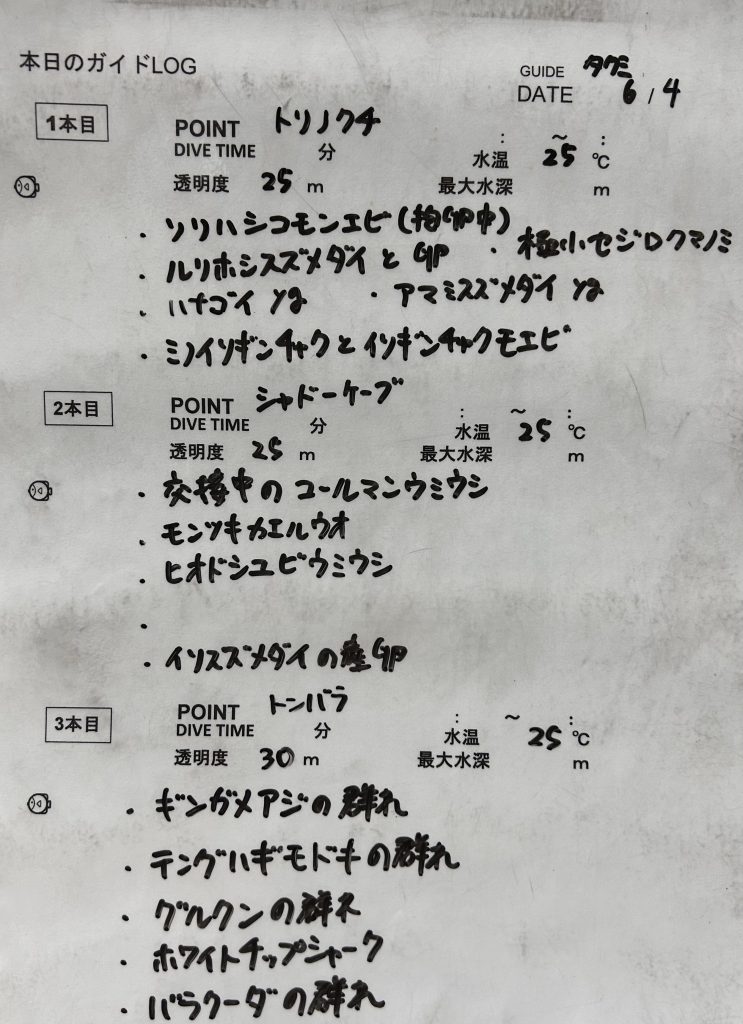 本日のガイドLOG
GUIDE タクミ
DATE 6 / 4
1本目
POINT トリノクチ
DIVE TIME 分
: ～ :
水温 25 ℃
透明度 25 m
最大水深 m
・ソリハシコモンエビ(抱卵中)
・ルリホシスズメダイと卵 ・極小セジロクマノミ
・ハナゴイ yg ・アマミスズメダイ yg
・ミノイソギンチャクとイソギンチャクモエビ
2本目
POINT シャドーケーブ
DIVE TIME 分
: ～ :
水温 25 ℃
透明度 25 m
最大水深 m
・交接中のコールマンウミウシ
・モンツキカエルウオ
・ヒオドシユビウミウシ
・
・イソスズメダイの産卵
3本目
POINT トンバラ
DIVE TIME 分
: ～ :
水温 25 ℃
透明度 30 m
最大水深 m
・ギンガメアジの群れ
・テングハギモドキの群れ
・グルクンの群れ
・ホワイトチップシャーク
・バラクーダの群れ